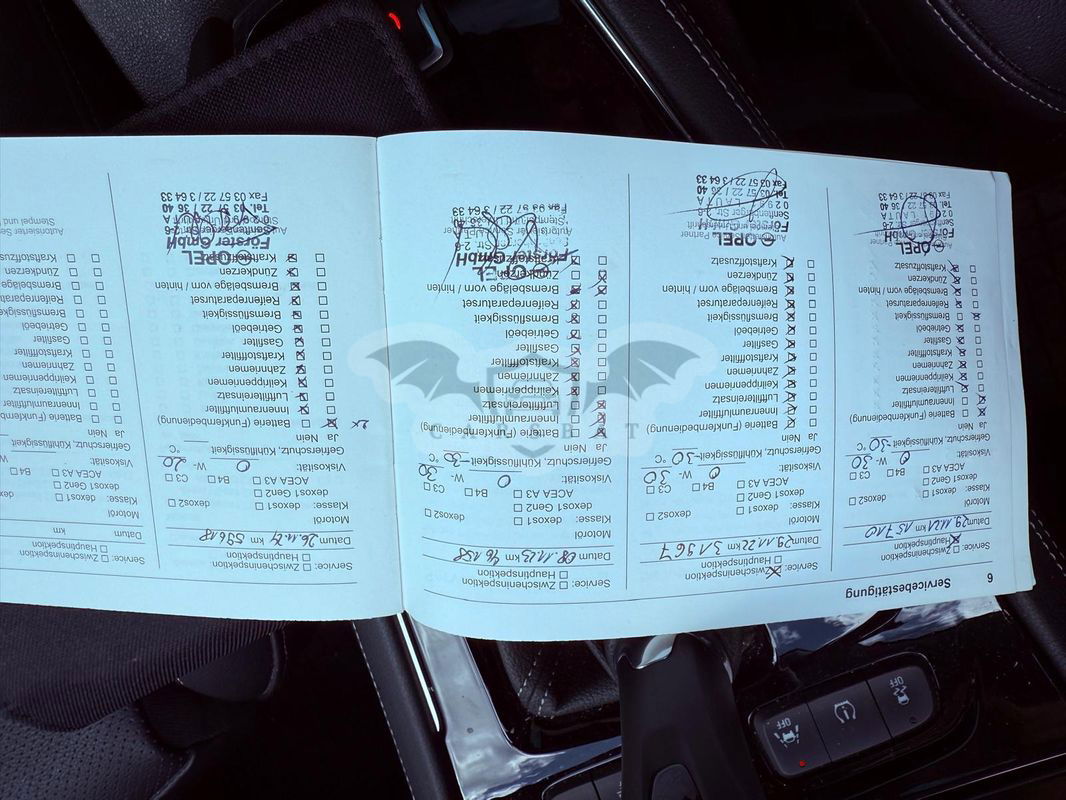 6 Servicebestätigung
Service: Zwischeninspektion
Hauptinspektion
Datum 29.11.21 km 15710
Motoröl
Klasse: dexos1 dexos2
dexos1 Gen2
ACEA A3 B4 C3
Viskosität: 0 W- 30
Gefrierschutz, Kühlflüssigkeit -30 °C
Ja Nein
Batterie (Funkfernbedienung)
Innenraumluftfilter
Luftfiltereinsatz
Keilrippenriemen
Zahnriemen
Kraftstofffilter
Gasfilter
Getriebeöl
Bremsflüssigkeit
Reifenreparaturset
Bremsbeläge vorn / hinten
Zündkerzen
Kraftstoffzusatz
OPEL
Service: Zwischeninspektion
Hauptinspektion
Datum 29.11.22 km 31967
Motoröl
Klasse: dexos1 dexos2
dexos1 Gen2
ACEA A3 B4 C3
Viskosität: 0 W- 30
Gefrierschutz, Kühlflüssigkeit -30 °C
Ja Nein
Batterie (Funkfernbedienung)
Innenraumluftfilter
Luftfiltereinsatz
Keilrippenriemen
Zahnriemen
Kraftstofffilter
Gasfilter
Getriebeöl
Bremsflüssigkeit
Reifenreparaturset
Bremsbeläge vorn / hinten
Zündkerzen
Kraftstoffzusatz
OPEL
Tel. 03 57 22 / 36 40
Fax 03 57 22 / 3 64 33
Service: Zwischeninspektion
Hauptinspektion
Datum 08.11.23 km 46158
Motoröl
Klasse: dexos1 dexos2
dexos1 Gen2
ACEA A3 B4 C3
Viskosität: 0 W- 30
Gefrierschutz, Kühlflüssigkeit -30 °C
Ja Nein
Batterie (Funkfernbedienung)
Innenraumluftfilter
Luftfiltereinsatz
Keilrippenriemen
Zahnriemen
Kraftstofffilter
Gasfilter
Getriebeöl
Bremsflüssigkeit
Reifenreparaturset
Bremsbeläge vorn / hinten
Zündkerzen
Kraftstoffzusatz
Service: Zwischeninspektion
Hauptinspektion
Datum km 59618
Motoröl
Klasse: dexos1 dexos2
dexos1 Gen2
ACEA A3 B4 C3
Viskosität: 0 W- 20
Gefrierschutz, Kühlflüssigkeit °C
Ja Nein
Batterie (Funkfernbedienung) 2x
Innenraumluftfilter
Luftfiltereinsatz
Keilrippenriemen
Zahnriemen
Kraftstofffilter
Gasfilter
Getriebeöl
Bremsflüssigkeit
Reifenreparaturset
Bremsbeläge vorn / hinten
Zündkerzen
Kraftstoffzusatz
OPEL
Förster GmbH
Tel. 03 57 22 / 36 40
Fax 03 57 22 / 3 64 33
Service: Zwischeninspektion
Hauptinspektion
Datum km
Motoröl
Klasse: dexos1
dexos1 Gen2
ACEA A3 B4
Viskosität: W-
Gefrierschutz, Kühlflüssigkeit
Ja Nein
Batterie (Funkfernb
Innenraumluftfilter
Luftfiltereinsatz
Keilrippenriemen
Zahnriemen
Kraftstofffilter
Gasfilter
Getriebeöl
Bremsflüssigkeit
Reifenreparaturset
Bremsbeläge vorn
Zündkerzen
Kraftstoffzusatz
Autorisierter Ser
Stempel und
CARSBAT
OFF
OFF